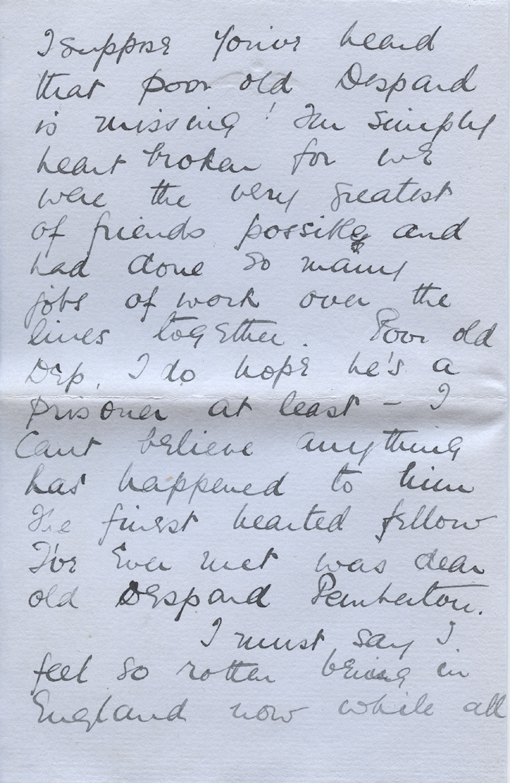 I suppose you've heard
that poor old Despard
is missing! I'm simply
heart broken for we
were the very greatest
of friends possible and
had done so many
jobs of work over the
lines together. Poor old
Dep, I do hope he's a
prisoner at least – I
Cant believe anything
has happened to him
The finest hearted fellow
I've Ever met was dear
old Despard Pemberton.
I must say I
feel so rotten being in
England now while all